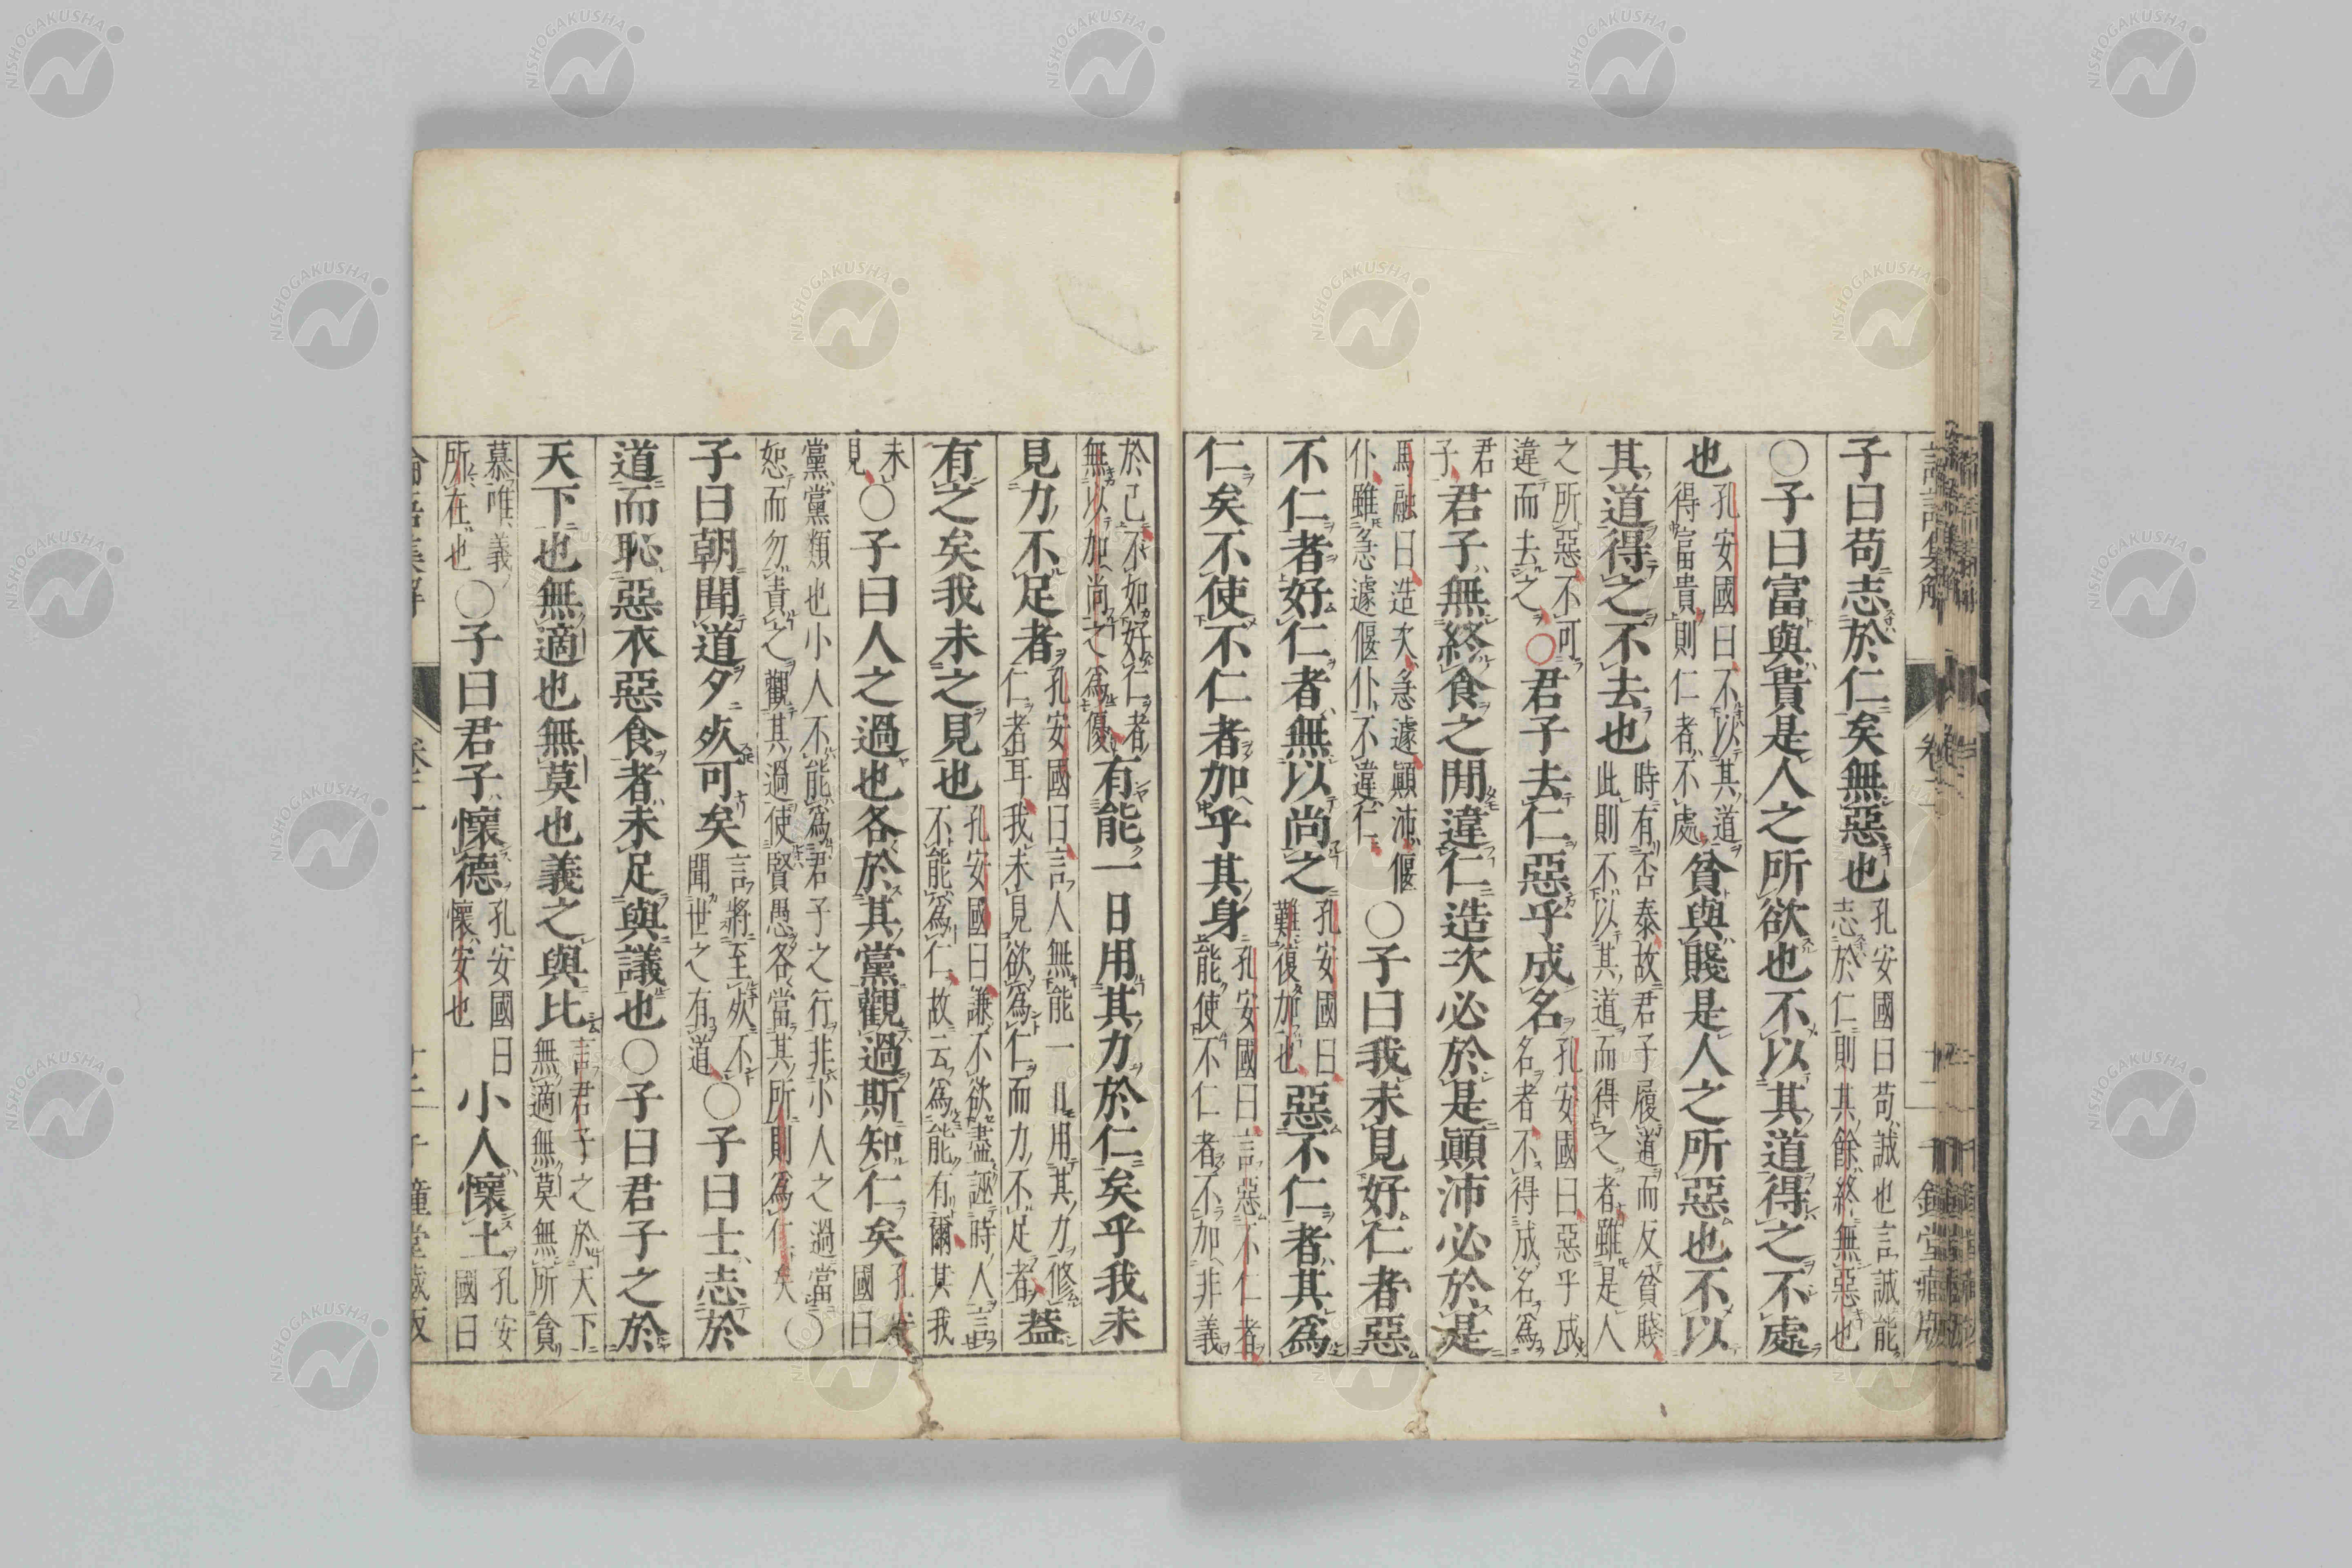 論語集解 卷二 十二 千鍾堂藏版
子曰苟志於仁矣無惡也孔安國曰苟誠也言誠能志於仁則其餘終無惡也
〇子曰富與貴是人之所欲也不以其道得之不處
也孔安國曰不以其道得富貴則仁者不處貧與賤是人之所惡也不以
其道得之不去也時有否泰故君子履道而反貧賤此則不以其道而得之者雖是人
之所惡不可違而去之〇君子去仁惡乎成名孔安國曰惡乎成名者不得成名爲
君子君子無終食之閒違仁造次必於是顚沛必於是
馬融曰造次急遽顚沛偃仆雖急遽偃仆不違仁〇子曰我未見好仁者惡
不仁者好仁者無以尚之孔安國曰難復加也惡不仁者其爲
仁矣不使不仁者加乎其身孔安國曰言惡不仁者能使不仁者不加非義
於己不如好仁者無以加尚之爲優有能一日用其力於仁矣乎我未
見力不足者孔安國曰言人無能一日用其力修仁者耳我未見欲爲仁而力不足者葢
有之矣我未之見也孔安國曰謙不欲盡誣時人言不能爲仁故云爲能有爾其我
未見〇子曰人之過也各於其黨觀過斯知仁矣孔安國曰
黨黨類也小人不能爲君子之行非小人之過當恕而勿責之觀其過使賢愚各當其所則爲仁矣〇
子曰朝聞道夕死可矣言將至死不聞世之有道〇子曰士志於
道而恥惡衣惡食者未足與議也〇子曰君子之於
天下也無適也無莫也義之與比言君子之於天下無適無莫無所貪
慕唯義所在也〇子曰君子懷德孔安國曰懷安也小人懷土孔安國曰
NISHOGAKUSHA